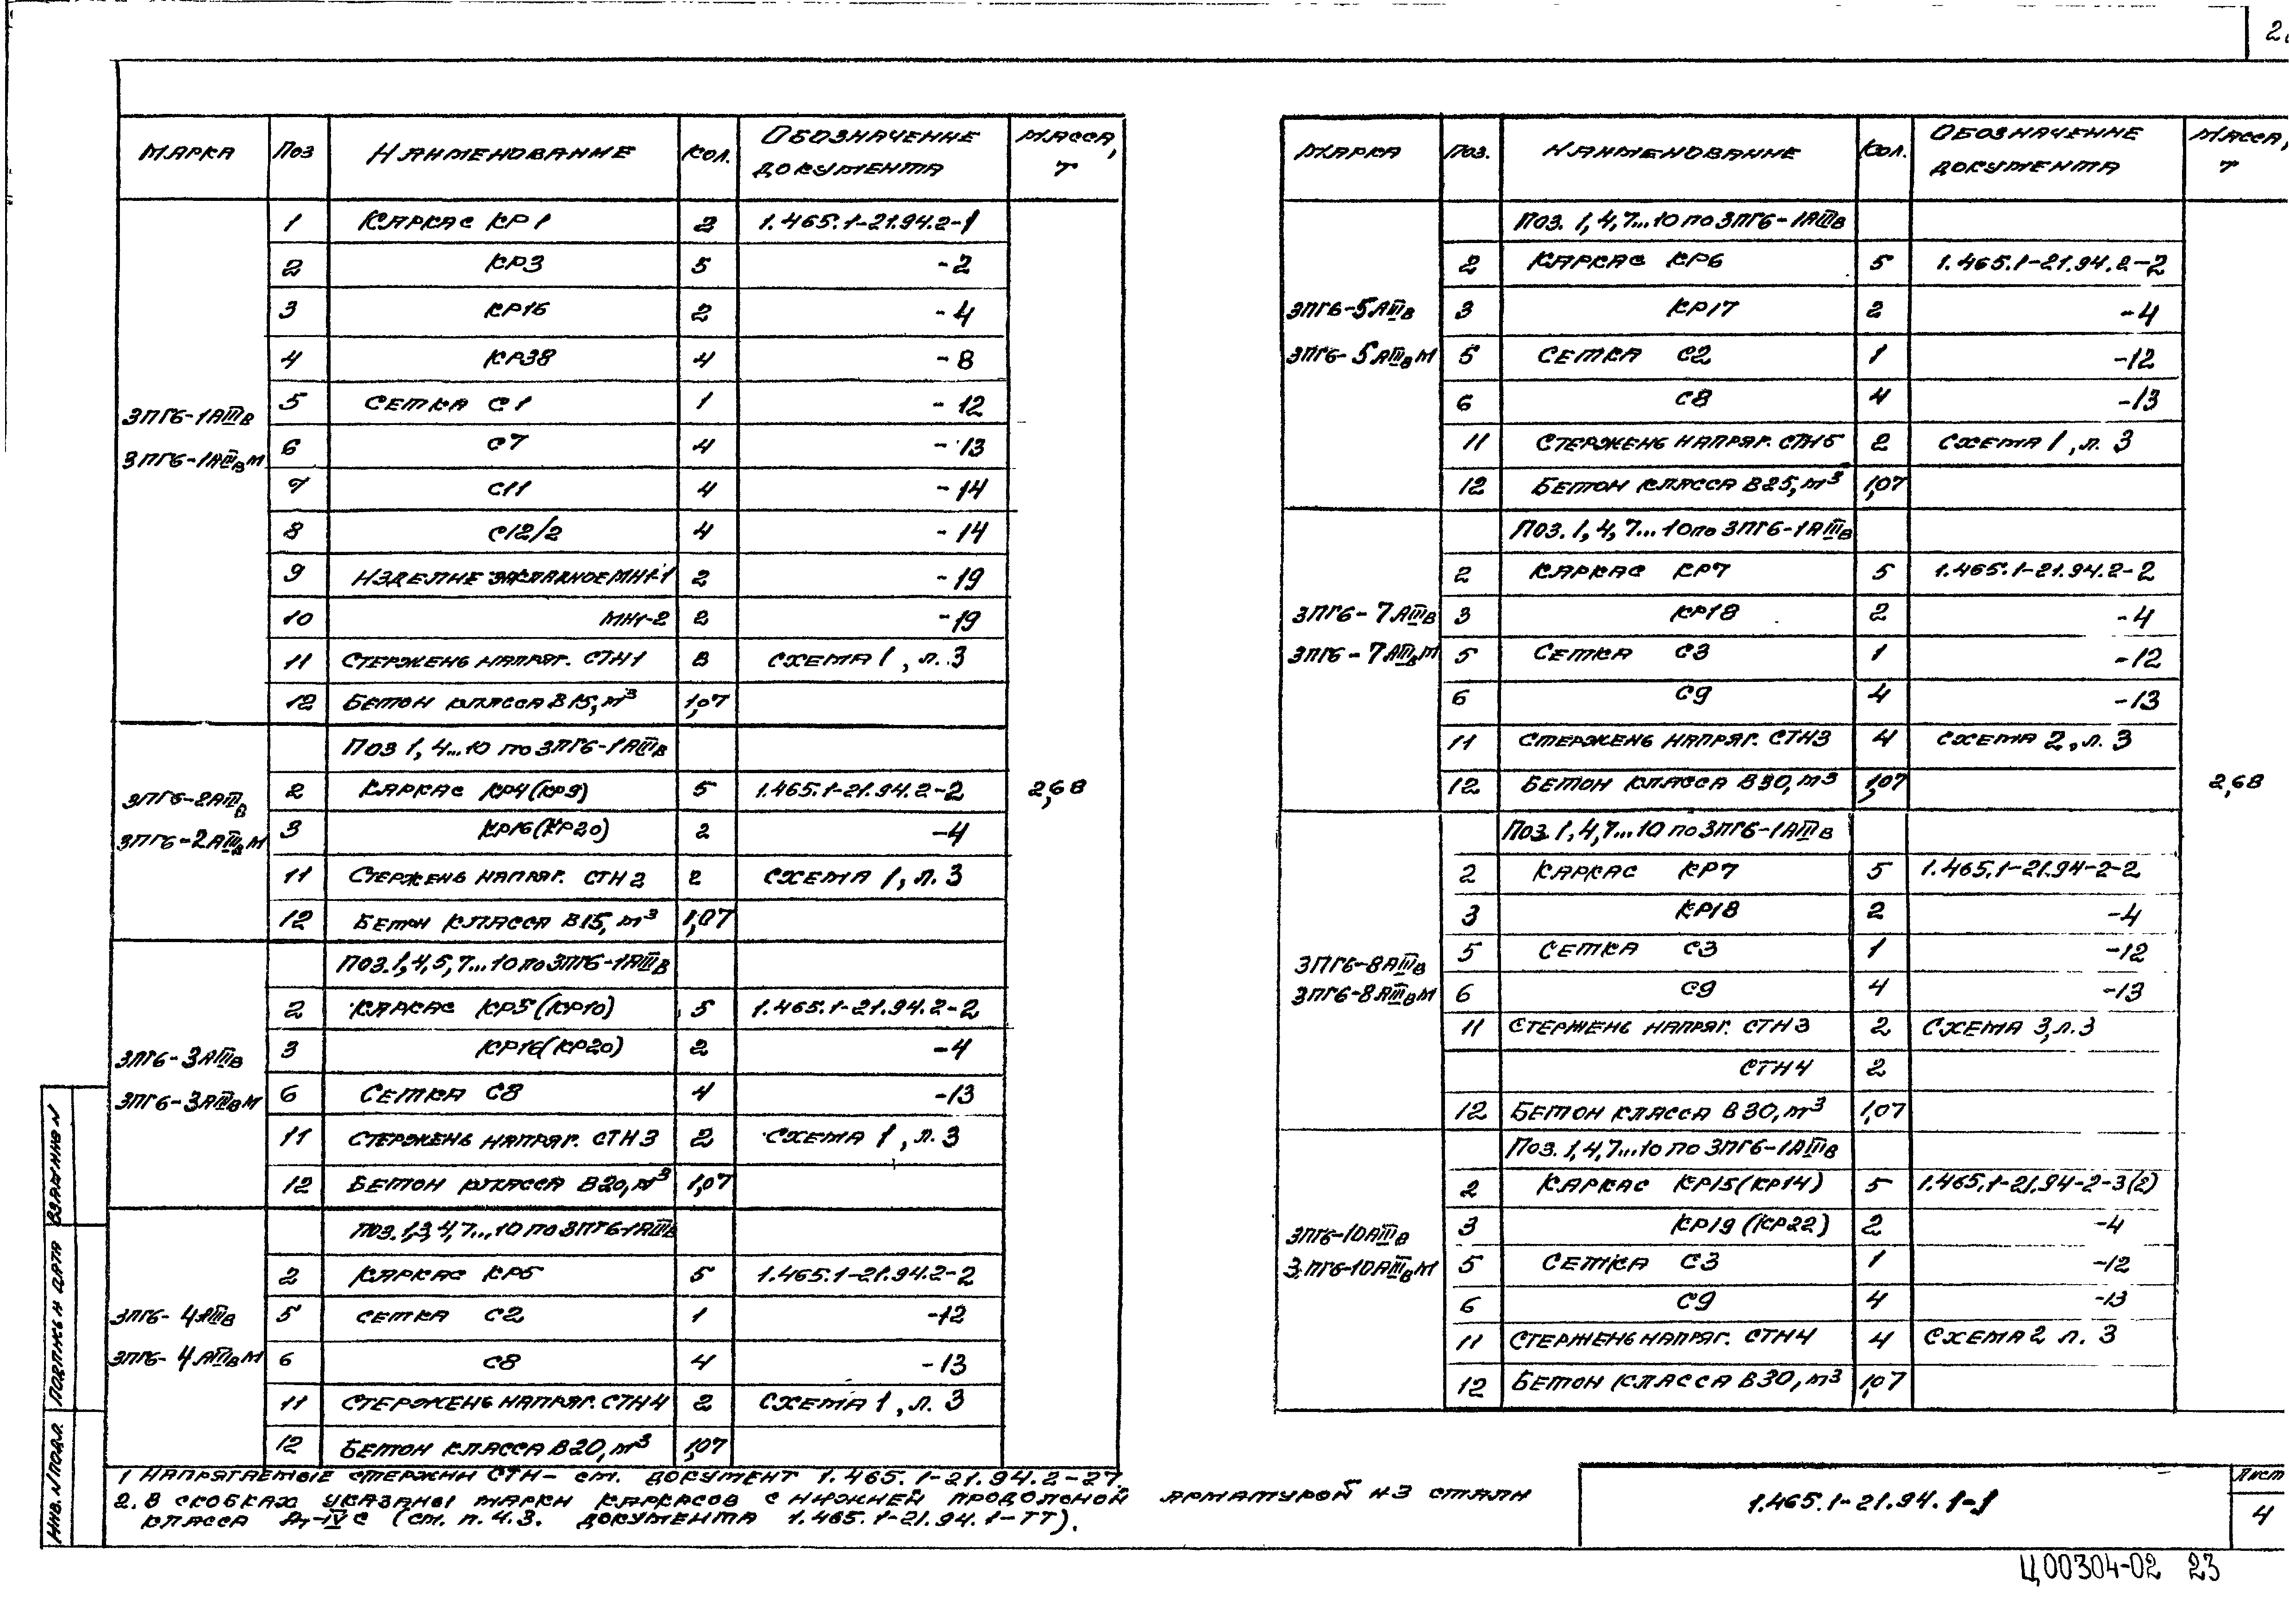 МАРКА ПОЗ НАИМЕНОВАНИЕ КОЛ. ОБОЗНАЧЕНИЕ ДОКУМЕНТА МАССА, Т
3ПГ6-1АIIIв
3ПГ6-1АIIIвМ
1 КАРКАС КР1 2 1.465.1-21.94.2-1
2 КР3 5 -2
3 КР16 2 -4
4 КР38 4 -8
5 СЕТКА С1 1 -12
6 С7 4 -13
7 С11 4 -14
8 С12/2 4 -14
9 ИЗДЕЛИЕ ЗАКЛАДНОЕ МН1-1 2 -19
10 МН1-2 2 -19
11 СТЕРЖЕНЬ НАПРЯГ. СТН1 СХЕМА 1, Л.3
12 БЕТОН КЛАССА В15, М³ 1,07
3ПГ6-2АIIIв
3ПГ6-2АIIIвМ
ПОЗ 1, 4...10 ПО 3ПГ6-1АIIIв
2 КАРКАС КР4(КР9) 5 1.465.1-21.94.2-2 2,68
3 КР16(КР20) 2 -4
11 СТЕРЖЕНЬ НАПРЯГ. СТН2 2 СХЕМА 1, Л.3
12 БЕТОН КЛАССА В15, М³ 1,07
3ПГ6-3АIIIв
3ПГ6-3АIIIвМ
ПОЗ.1,4,5,7...10 ПО 3ПГ6-1АIIIв
2 КАРКАС КР5(КР10) 5 1.465.1-21.94.2-2
3 КР16(КР20) 2 -4
6 СЕТКА С8 4 -13
11 СТЕРЖЕНЬ НАПРЯГ. СТН3 2 СХЕМА 1, Л.3
12 БЕТОН КЛАССА В20, М³ 1,07
3ПГ6-4АIIIв
3ПГ6-4АIIIвМ
ПОЗ.1,3,4,7...10 ПО 3ПГ6-1АIIIв
2 КАРКАС КР5 5 1.465.1-21.94.2-2
5 СЕТКА С2 1 -12
6 С8 4 -13
11 СТЕРЖЕНЬ НАПРЯГ. СТН4 2 СХЕМА 1, Л.3
12 БЕТОН КЛАССА В20, М³ 1,07
МАРКА ПОЗ. НАИМЕНОВАНИЕ КОЛ. ОБОЗНАЧЕНИЕ ДОКУМЕНТА МАССА, Т
3ПГ6-5АIIIв
3ПГ6-5АIIIвМ
ПОЗ. 1,4,7...10 ПО 3ПГ6-1АIIIв
2 КАРКАС КР6 5 1.465.1-21.94.2-2
3 КР17 2 -4
5 СЕТКА С2 1 -12
6 С8 4 -13
11 СТЕРЖЕНЬ НАПРЯГ. СТН5 2 СХЕМА 1, Л.3
12 БЕТОН КЛАССА В25, М³ 1,07
3ПГ6-7АIIIв
3ПГ6-7АIIIвМ
ПОЗ. 1,4,7...10 ПО 3ПГ6-1АIIIв
2 КАРКАС КР7 5 1.465.1-21.94.2-2
3 КР18 2 -4
5 СЕТКА С3 1 -12
6 С9 4 -13
11 СТЕРЖЕНЬ НАПРЯГ. СТН3 4 СХЕМА 2, Л.3
12 БЕТОН КЛАССА В30, М³ 1,07 2,68
3ПГ6-8АIIIв
3ПГ6-8АIIIвМ
ПОЗ.1,4,7...10 ПО 3ПГ6-1АIIIв
2 КАРКАС КР7 5 1.465.1-21.94-2-2
3 КР18 2 -4
5 СЕТКА С3 1 -12
6 С9 4 -13
11 СТЕРЖЕНЬ НАПРЯГ. СТН3 2 СХЕМА 3, Л.3
СТН4 2
12 БЕТОН КЛАССА В30, М³ 1,07
3ПГ6-10АIIIв
3ПГ6-10АIIIвМ
ПОЗ.1,4,7...10 ПО 3ПГ6-1АIIIв
2 КАРКАС КР15(КР14) 5 1.465.1-21.94-2-3(2)
3 КР19(КР22) 2 -4
5 СЕТКА С3 1 -12
6 С9 4 -13
11 СТЕРЖЕНЬ НАПРЯГ. СТН4 4 СХЕМА 2 Л.3
12 БЕТОН КЛАССА В30, М³ 1,07
1 НАПРЯГАЕМЫЕ СТЕРЖНИ СТН- СМ. ДОКУМЕНТ 1.465.1-21.94.2-27.
2. В СКОБКАХ УКАЗАНЫ МАРКИ КАРКАСОВ С НИЖНЕЙ ПРОДОЛЬНОЙ АРМАТУРОЙ ИЗ СТАЛИ
КЛАССА Ат-IVС (СМ. П.4.3. ДОКУМЕНТА 1.465.1-21.94.1-ТТ).
ИНВ.N/ПОДЛ. ПОДПИСЬ И ДАТА ВЗАМ ИНВ N
1.465.1-21.94.1-1
ЛИСТ
4
Ц00304-02 23